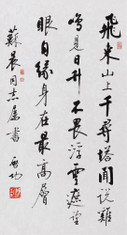 飛来山上千尋塔聞說雞
鳴見日升不畏浮雲遮望
眼自緣身在最高層
蘇晨同志屬書 啟功